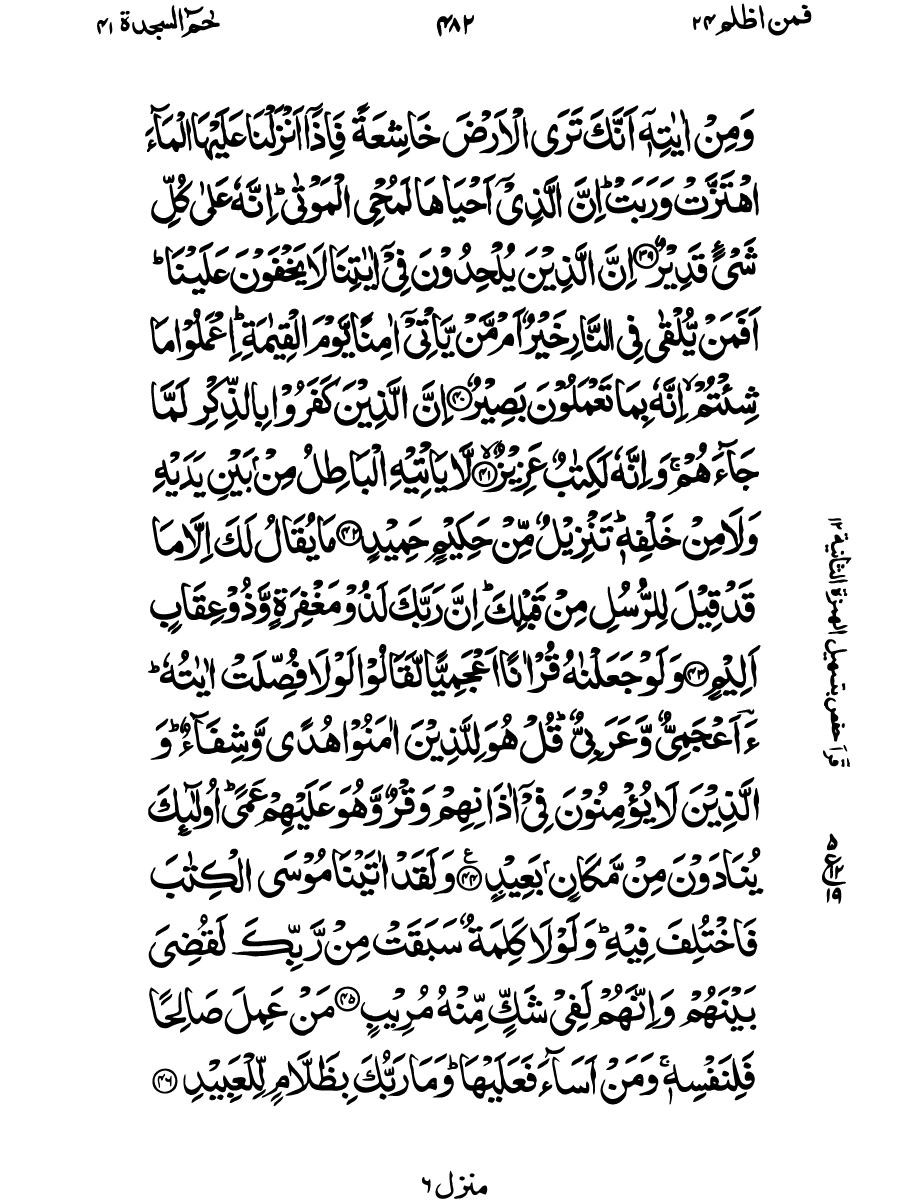 فمن اظلم ۲۴
۴۸۲
حٰمٓ السجدة ۴۱
وَمِنْ اٰيٰتِهٖۤ اَنَّكَ تَرَى الْاَرْضَ خَاشِعَةً فَاِذَاۤ اَنْزَلْنَا عَلَيْهَا الْمَآءَ
اهْتَزَّتْ وَرَبَتْ ؕ اِنَّ الَّذِيْۤ اَحْيَاهَا لَمُحْيِ الْمَوْتٰى ؕ اِنَّهٗ عَلٰى كُلِّ
شَيْءٍ قَدِيْرٌ ﴿۳۹﴾ اِنَّ الَّذِيْنَ يُلْحِدُوْنَ فِيْۤ اٰيٰتِنَا لَا يَخْفَوْنَ عَلَيْنَا ؕ
اَفَمَنْ يُّلْقٰى فِي النَّارِ خَيْرٌ اَمْ مَّنْ يَّاْتِيْۤ اٰمِنًا يَّوْمَ الْقِيٰمَةِ ؕ اِعْمَلُوْا مَا
شِئْتُمْ ۙ اِنَّهٗ بِمَا تَعْمَلُوْنَ بَصِيْرٌ ﴿۴۰﴾ اِنَّ الَّذِيْنَ كَفَرُوْا بِالذِّكْرِ لَمَّا
جَآءَهُمْ ۚ وَاِنَّهٗ لَكِتٰبٌ عَزِيْزٌ ۙ﴿۴۱﴾ لَّا يَاْتِيْهِ الْبَاطِلُ مِنْۢ بَيْنِ يَدَيْهِ
وَلَا مِنْ خَلْفِهٖ ؕ تَنْزِيْلٌ مِّنْ حَكِيْمٍ حَمِيْدٍ ﴿۴۲﴾ مَا يُقَالُ لَكَ اِلَّا مَا
قَدْ قِيْلَ لِلرُّسُلِ مِنْ قَبْلِكَ ؕ اِنَّ رَبَّكَ لَذُوْ مَغْفِرَةٍ وَّذُوْ عِقَابٍ
اَلِيْمٍ ﴿۴۳﴾ وَلَوْ جَعَلْنٰهُ قُرْاٰنًا اَعْجَمِيًّا لَّقَالُوْا لَوْلَا فُصِّلَتْ اٰيٰتُهٗ ؕ
ءَاَعْجَمِيٌّ وَّعَرَبِيٌّ ؕ قُلْ هُوَ لِلَّذِيْنَ اٰمَنُوْا هُدًى وَّشِفَآءٌ ؕ وَ
الَّذِيْنَ لَا يُؤْمِنُوْنَ فِيْۤ اٰذَانِهِمْ وَقْرٌ وَّهُوَ عَلَيْهِمْ عَمًى ؕ اُولٰٓئِكَ
يُنَادَوْنَ مِنْ مَّكَانٍۭ بَعِيْدٍ ﴿۴۴﴾ ع وَلَقَدْ اٰتَيْنَا مُوْسَى الْكِتٰبَ
فَاخْتُلِفَ فِيْهِ ؕ وَلَوْلَا كَلِمَةٌ سَبَقَتْ مِنْ رَّبِّكَ لَقُضِيَ
بَيْنَهُمْ ؕ وَاِنَّهُمْ لَفِيْ شَكٍّ مِّنْهُ مُرِيْبٍ ﴿۴۵﴾ مَنْ عَمِلَ صَالِحًا
فَلِنَفْسِهٖ ۚ وَمَنْ اَسَآءَ فَعَلَيْهَا ؕ وَمَا رَبُّكَ بِظَلَّامٍ لِّلْعَبِيْدِ ﴿۴۶﴾
قرأ حفص بتسهيل الهمزة الثانية ۱۲
۵
ع ۱۲
۱۹
منزل ۶